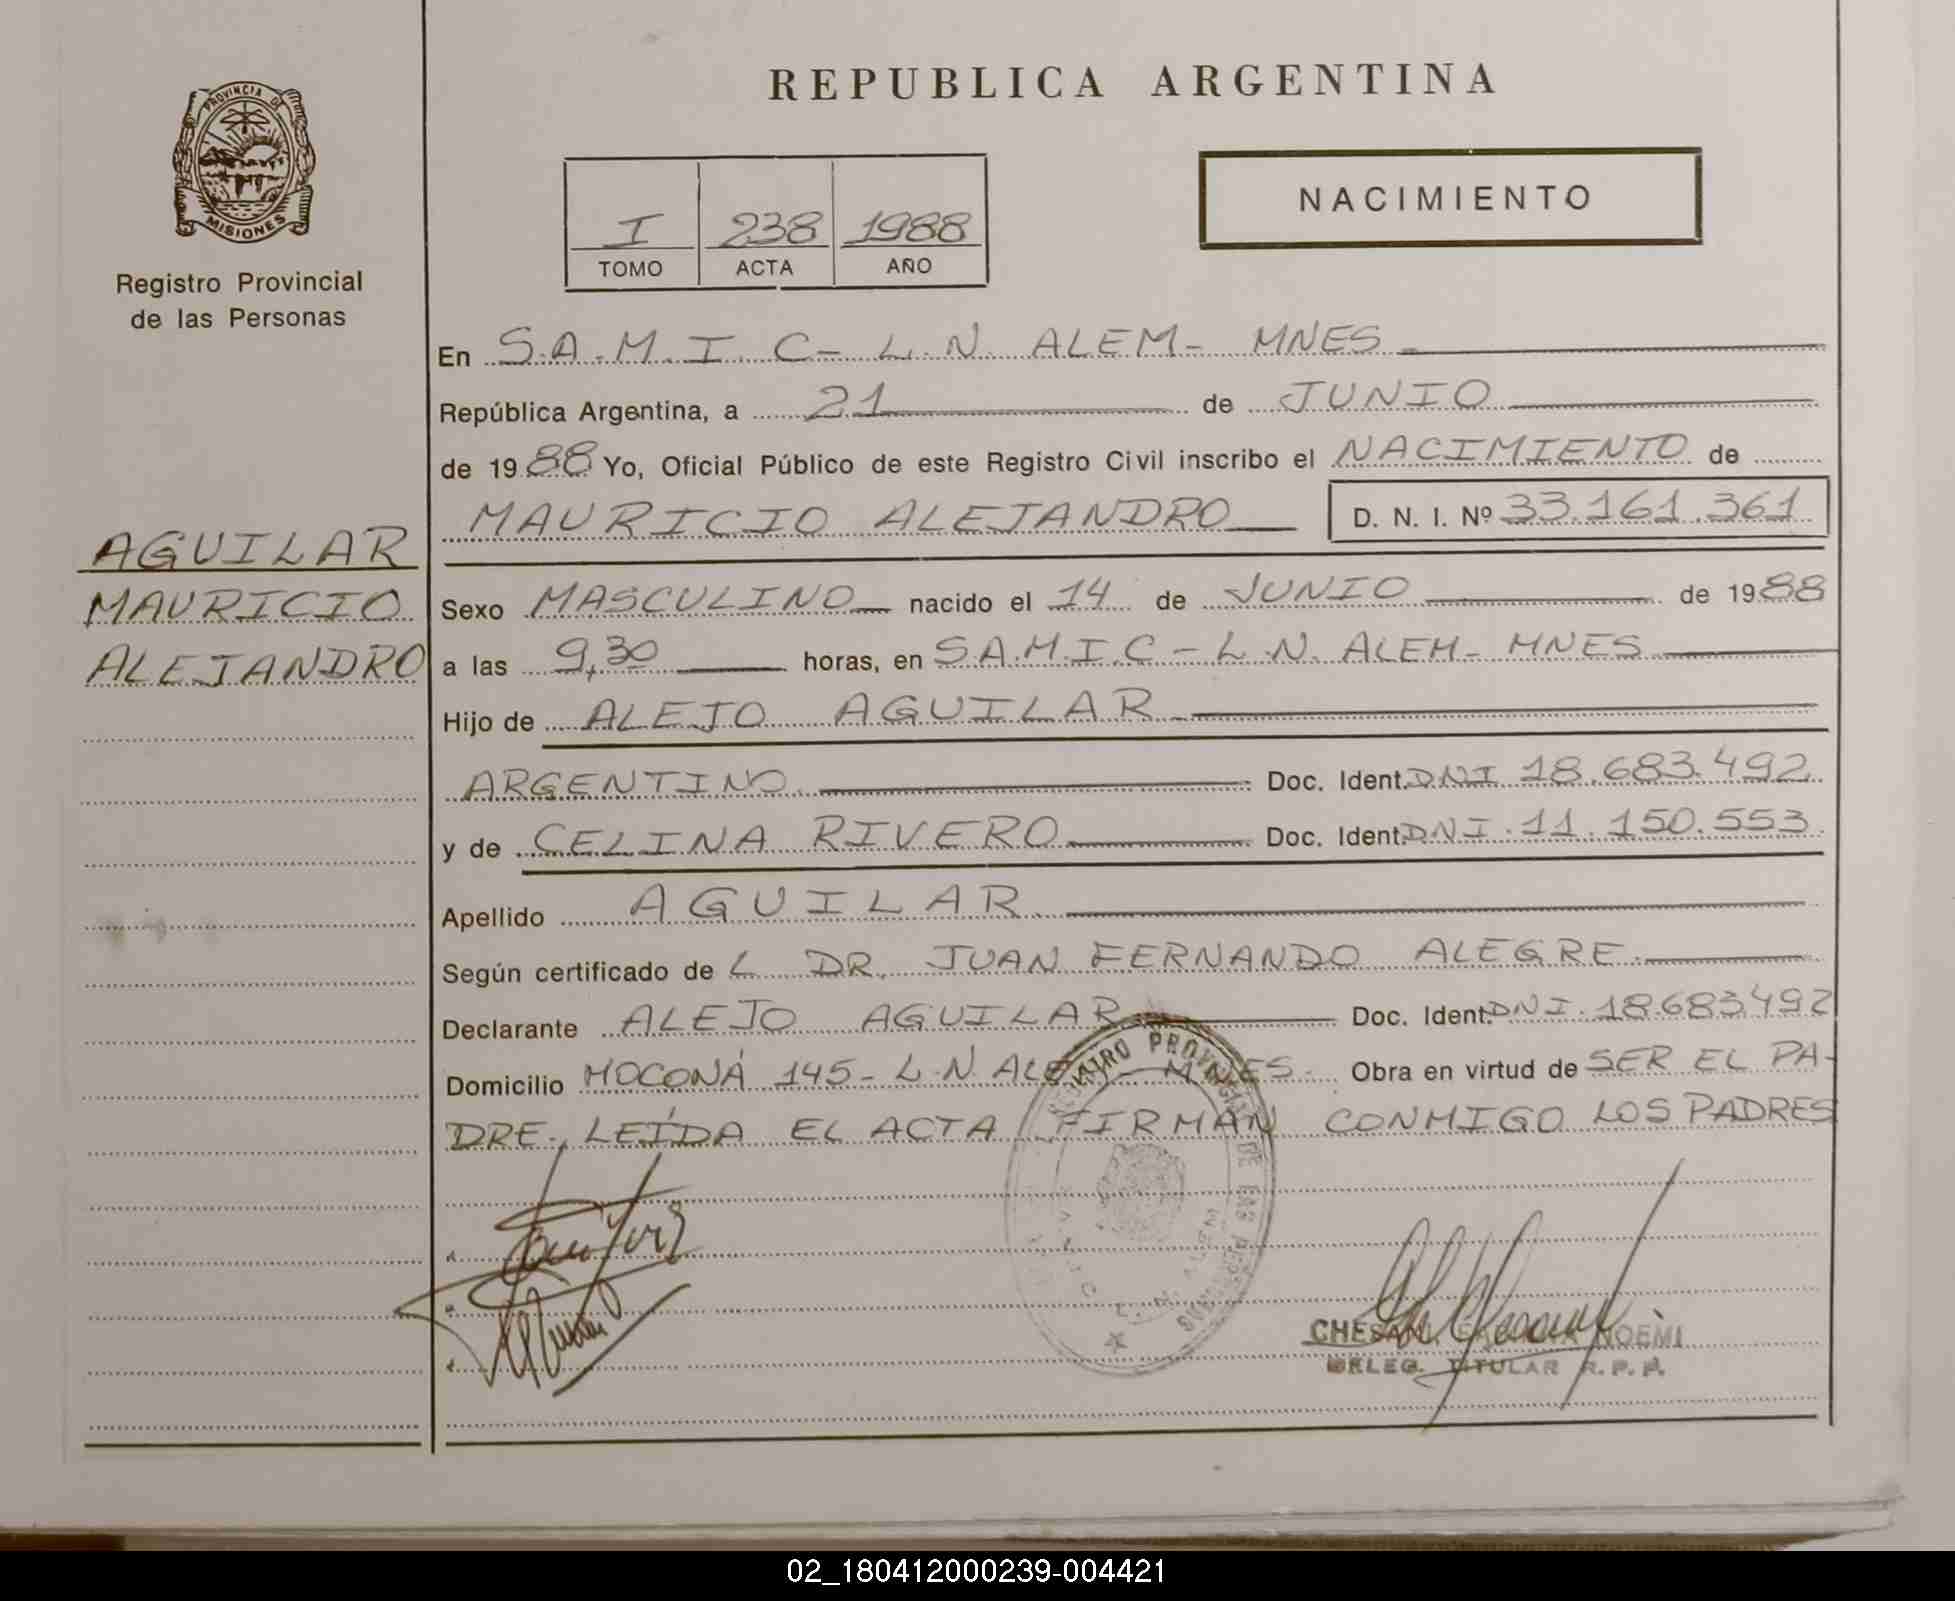 PROVINCIA DE
MISIONES
Registro Provincial
de las Personas
AGUILAR
MAURICIO
ALEJANDRO
REPUBLICA ARGENTINA
I 238 1988
TOMO ACTA AÑO
NACIMIENTO
En S.A.M.I.C- L.N. ALEM- MNES
República Argentina, a 21 de JUNIO
de 1988 Yo, Oficial Público de este Registro Civil inscribo el NACIMIENTO de
MAURICIO ALEJANDRO D. N. I. Nº 33.161.361
Sexo MASCULINO nacido el 14 de JUNIO de 1988
a las 9,30 horas, en S.A.M.I.C - L.N. ALEM- MNES
Hijo de ALEJO AGUILAR
ARGENTINO Doc. Ident. DNI 18.683.492
y de CELINA RIVERO Doc. Ident. DNI. 11.150.553
Apellido AGUILAR
Según certificado de L DR. JUAN FERNANDO ALEGRE
Declarante ALEJO AGUILAR Doc. Ident. DNI. 18.683.492
Domicilio MOCONÁ 145- L.N ALEM- MNES. Obra en virtud de SER EL PA-
DRE., LEÍDA EL ACTA FIRMAN CONMIGO LOS PADRES
REGISTRO PROVINCIAL DE LAS PERSONAS
L. N. ALEM
CHESANI NOEMI
DELEG. TITULAR R. P. P.
02_180412000239-004421